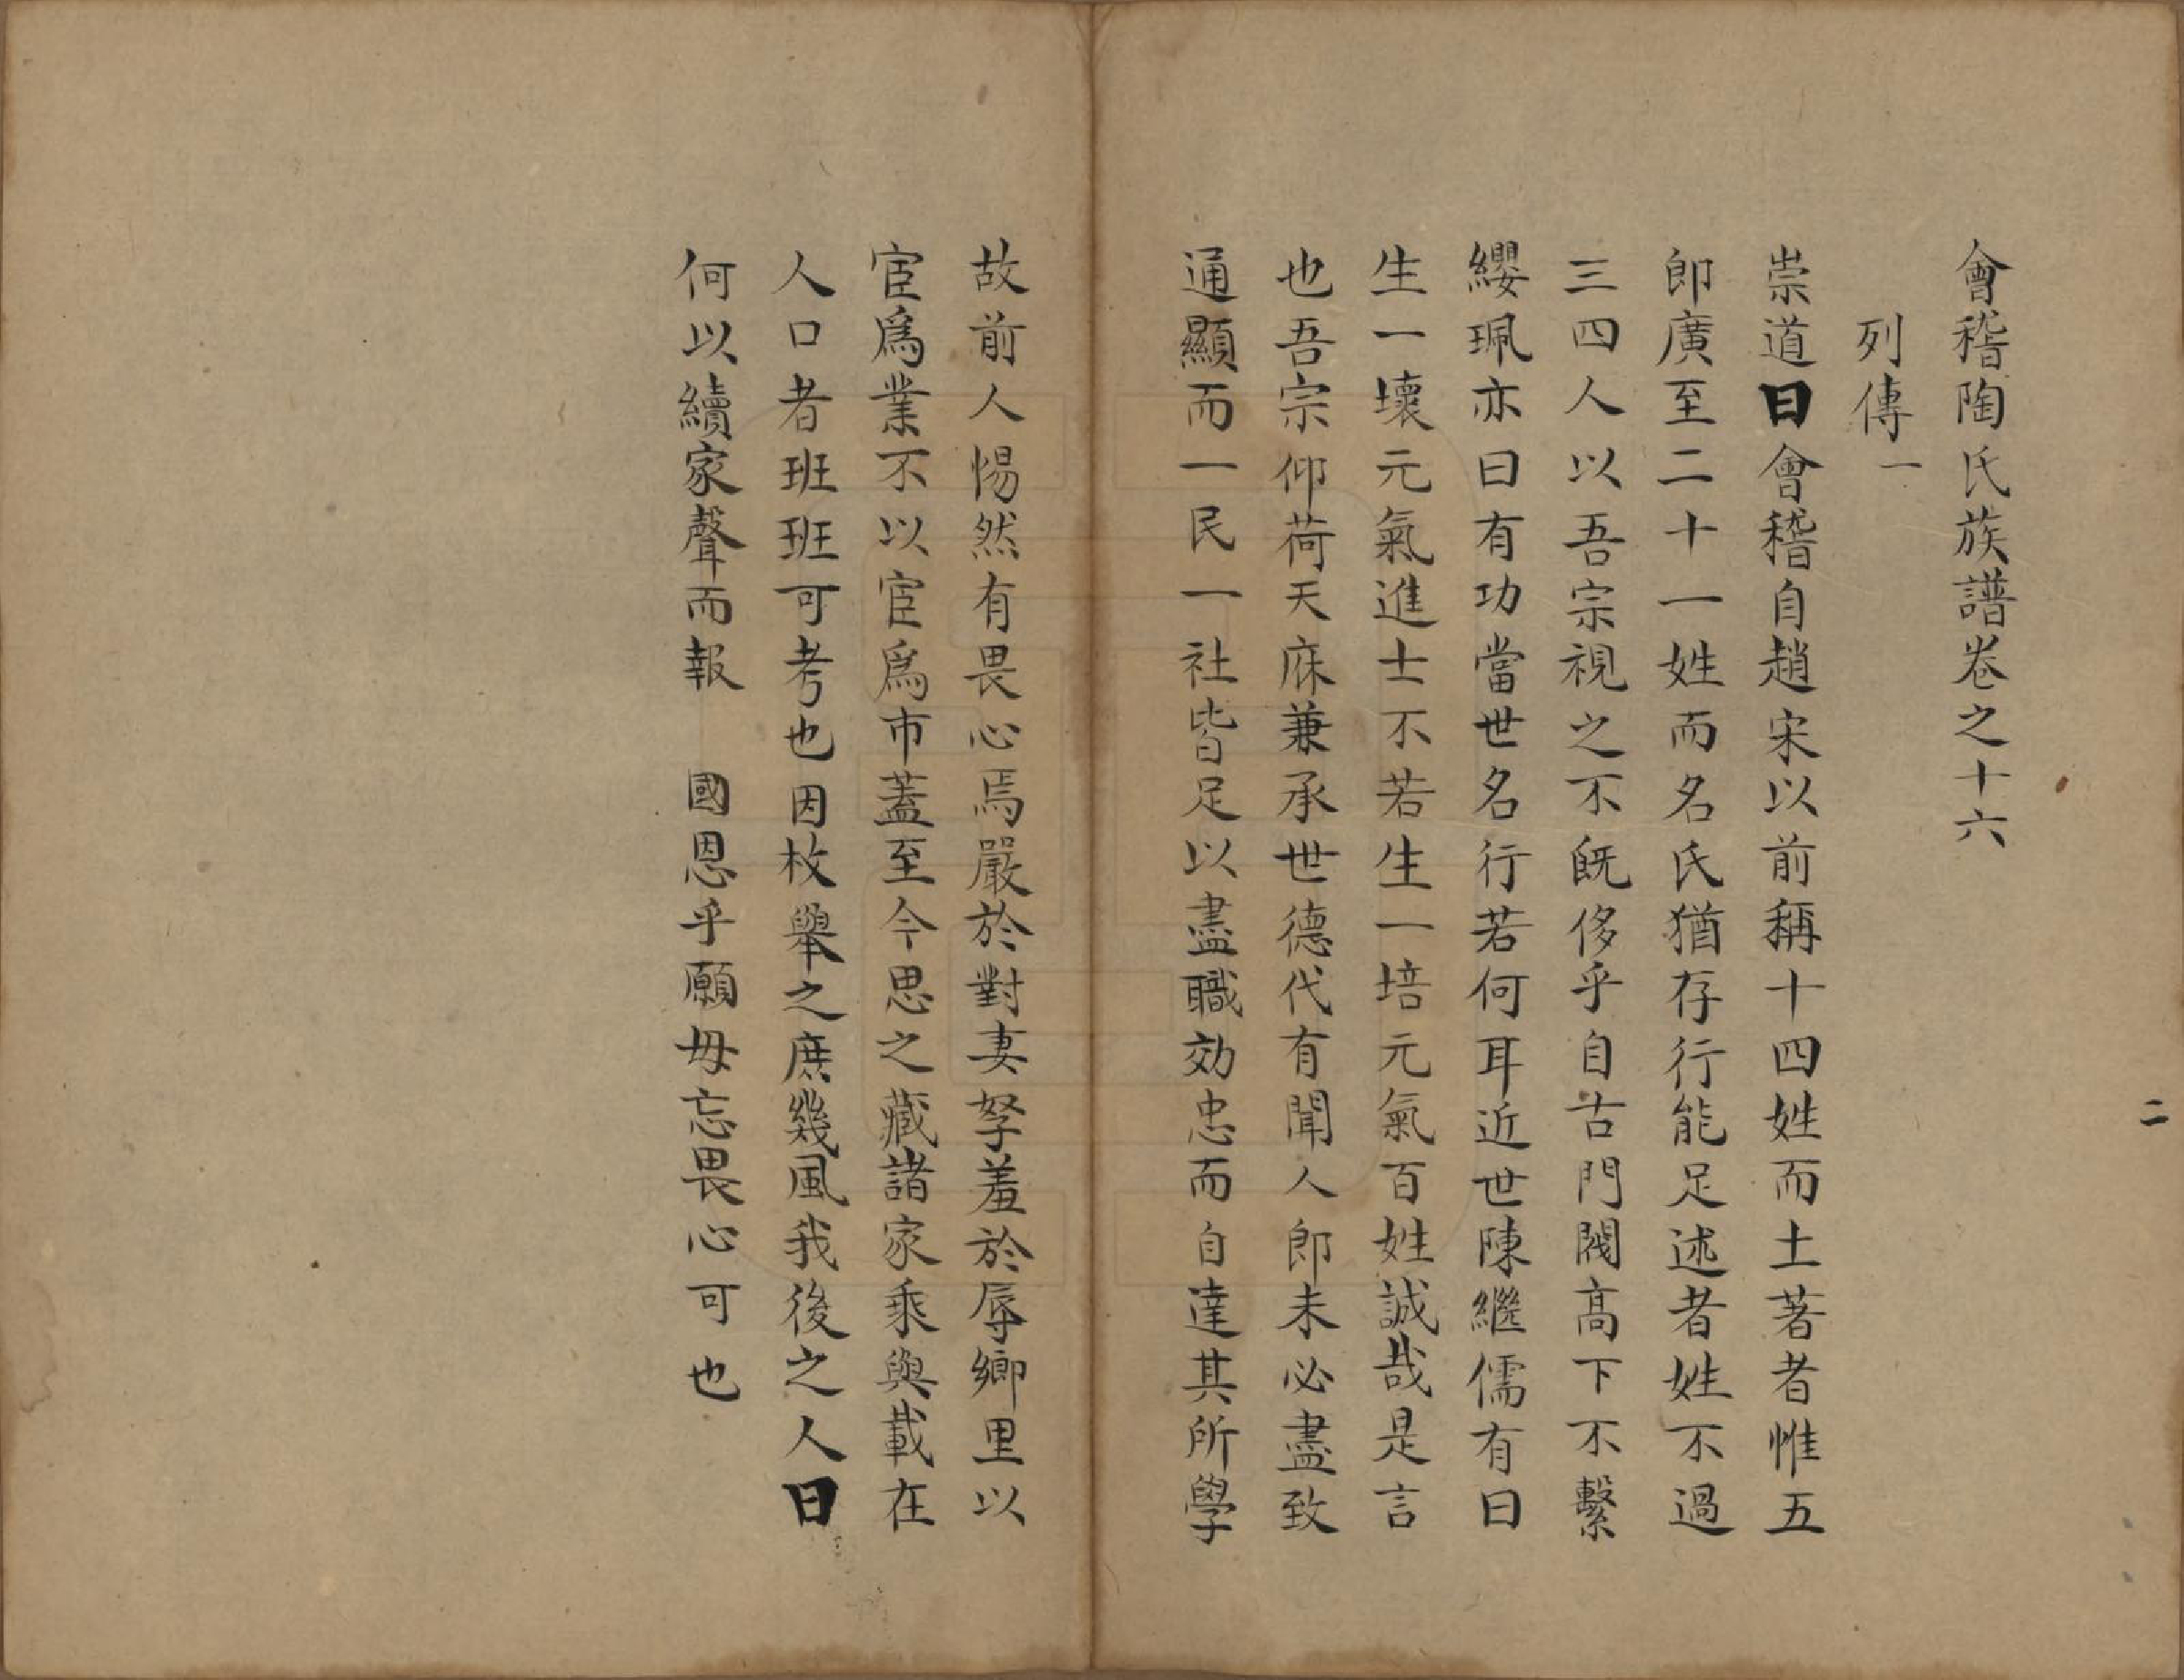 會稽陶氏族譜卷之十六
列傳一
崇道曰會稽自趙宋以前稱十四姓而土著者惟五
郎廣至二十一姓而名氏猶存行能足述者姓不過
三四人以吾宗視之不既侈乎自古門閥高下不繫
纓珮亦曰有功當世名行若何耳近世陳繼儒有曰
生一壞元氣進士不若生一培元氣百姓誠哉是言
也吾宗仰荷天庥兼承世德代有聞人郎未必盡致
通顯而一民一社皆足以盡職効忠而自達其所學
故前人惕然有畏心焉嚴於對妻孥羞於辱鄉里以
宦為業不以宦為市蓋至今思之藏諸家乘與載在
人口者班班可考也因枚舉之庶幾風我後之人曰
何以續家聲而報　國恩乎願毋忘畏心可也
二